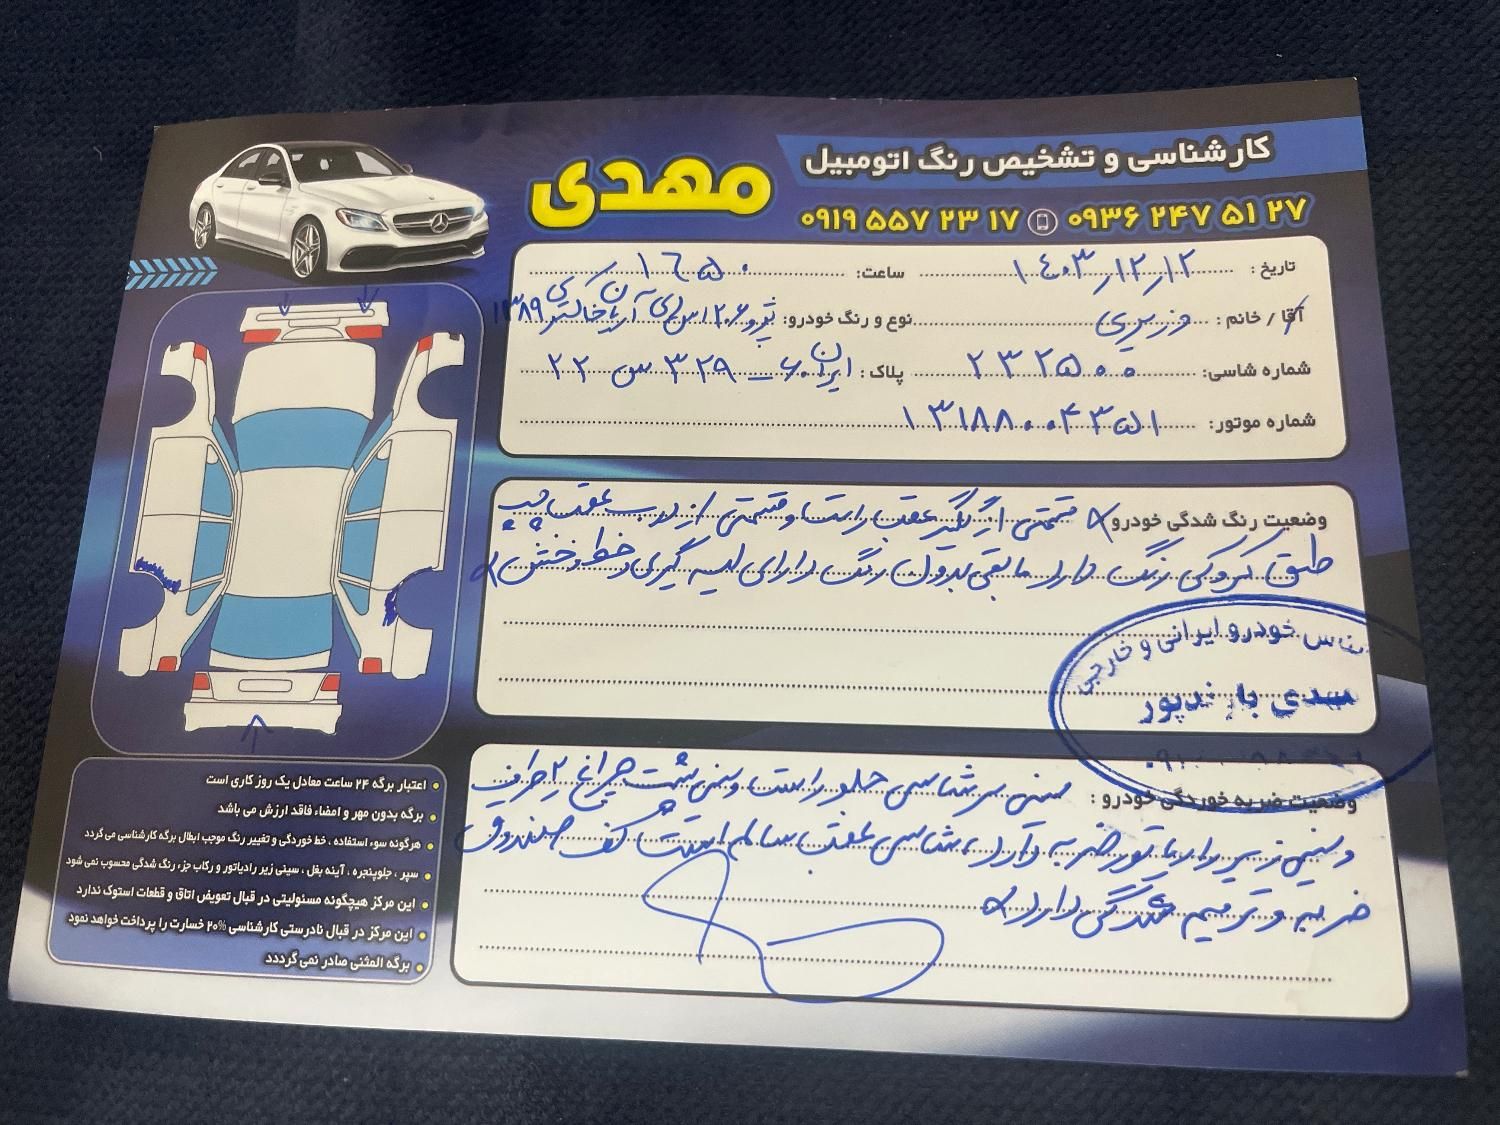 کارشناسی و تشخیص رنگ اتومبیل
مهدی
۰۹۳۶ ۲۴۷ ۵۱ ۲۷
۰۹۱۹ ۵۵۷ ۲۳ ۱۷
تاریخ : ۱۴۰۳/۱۲/۱۲ ساعت: ۱۶۵۰
آقا / خانم : وزیری نوع و رنگ خودرو: پژو ۲۰۶ اس دی آریان خاکستری ۱۳۸۹
شماره شاسی: ۲۳۲۵۰۰ پلاک : ایران ۶۰ - ۳۲۹ س ۲۲
شماره موتور: ۱۳۱۸۸۰۰۴۳۵۱
وضعیت رنگ شدگی خودرو قسمتی از گلگیر عقب راست و قسمتی از درب عقب چپ
طبق کروکی رنگ دارد مابقی بدون رنگ دارای لیسه گیری و خط و خش
شناس خودرو ایرانی و خارجی
وضعیت ضربه خوردگی خودرو : سینی سر شاسی جلو راست و سینی پشت چراغ ۲ طرف
و سینی زیر رادیاتور ضربه دارد، شاسی عقب سالم است، کف صندوق
ضربه و ترمیم شدگی دارد
اعتبار برگه ۲۴ ساعت معادل یک روز کاری است
برگه بدون مهر و امضاء فاقد ارزش می باشد
هرگونه سوء استفاده ، خط خوردگی و تغییر رنگ موجب ابطال برگه کارشناسی می گردد
سپر ، جلوپنجره ، آینه بغل ، سینی زیر رادیاتور و رکاب جزء رنگ شدگی محسوب نمی شود
این مرکز هیچگونه مسئولیتی در قبال تعویض اتاق و قطعات استوک ندارد
این مرکز در قبال نادرستی کارشناسی ۲۰% خسارت را پرداخت خواهد نمود
برگه المثنی صادر نمی گرددد